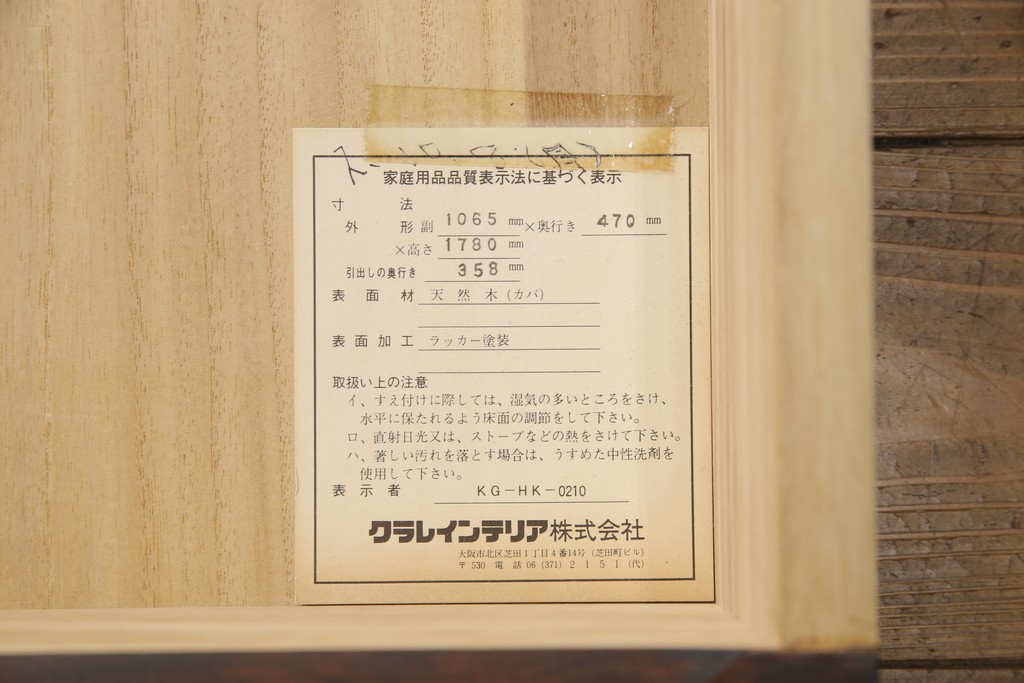 家庭用品品質表示法に基づく表示
寸 法
外 形 副 1065 mm×奥行き 470 mm
×高さ 1780 mm
引出しの奥行き 358 mm
表 面 材 天 然 木 (カバ)
表 面 加 工 ラッカー塗装
取扱い上の注意
イ、すえ付けに際しては、湿気の多いところをさけ、
水平に保たれるよう床面の調節をして下さい。
ロ、直射日光又は、ストーブなどの熱をさけて下さい。
ハ、著しい汚れを落とす場合は、うすめた中性洗剤を
使用して下さい。
表 示 者 KG-HK-0210
クラレインテリア株式会社
大阪市北区芝田1丁目4番14号 (芝田町ビル)
〒 530 電 話 06 (371) 2 1 5 1 (代)